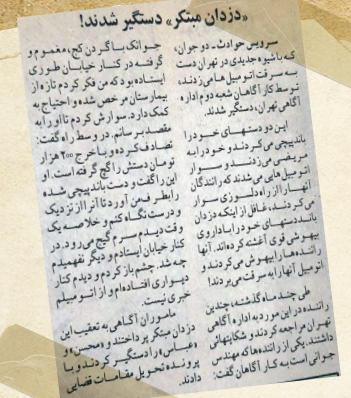 «دزدان مبتکر» دستگیر شدند!
سرویس حوادث ـ دو جوان،
که با شیوه جدیدی در تهران دست
به سرقت اتومبیل ها می زدند،
توسط کارآگاهان شعبه دوم اداره
آگاهی تهران، دستگیر شدند.
این دو دستهای خود را
باندپیچی می کردند و خود را به
مریضی می زدند و سوار
اتومبیل هایی می شدند که رانندگان
آنها را از راه دلسوزی سوار
می کردند، غافل از اینکه دزدان
باند دستهای خود را با داروی
بیهوشی قوی آغشته کرده اند. آنها
راننده ها را بیهوش می کردند و
اتومبیل آنها را به سرقت می بردند!
طی چند ماه گذشته، چندین
راننده در این مورد به اداره آگاهی
تهران مراجعه کردند و شکایتهائی
داشتند. یکی از راننده ها که مهندس
جوانی است به کارآگاهان گفت:
جوانک با گردن کج، مغموم و
گرفته در کنار خیابان طوری
ایستاده بود که من فکر کردم تازه از
بیمارستان مرخص شده و احتیاج به
کمک دارد. سوارش کردم تا او را به
مقصد برسانم. در وسط راه گفت:
تصادف کرده و با خرج ۲۰۰ هزار
تومان دستش را گچ گرفته است. او
این را گفت و دست باندپیچی شده
را بطرف من آورد تا آنرا از نزدیک
و درست نگاه کنم و خلاصه یک
وقت دیدم سرم گیج می رود. در
کنار خیابان ایستادم و دیگر نفهمیدم
چه شد. چشم باز کردم و دیدم کنار
دیواری افتاده ام و از اتومبیلم
خبری نیست.
ماموران آگاهی به تعقیب این
دزدان مبتکر پرداختند و «محسن» و
«عباس» را دستگیر کردند و با
پرونده تحویل مقامات قضایی
دادند.